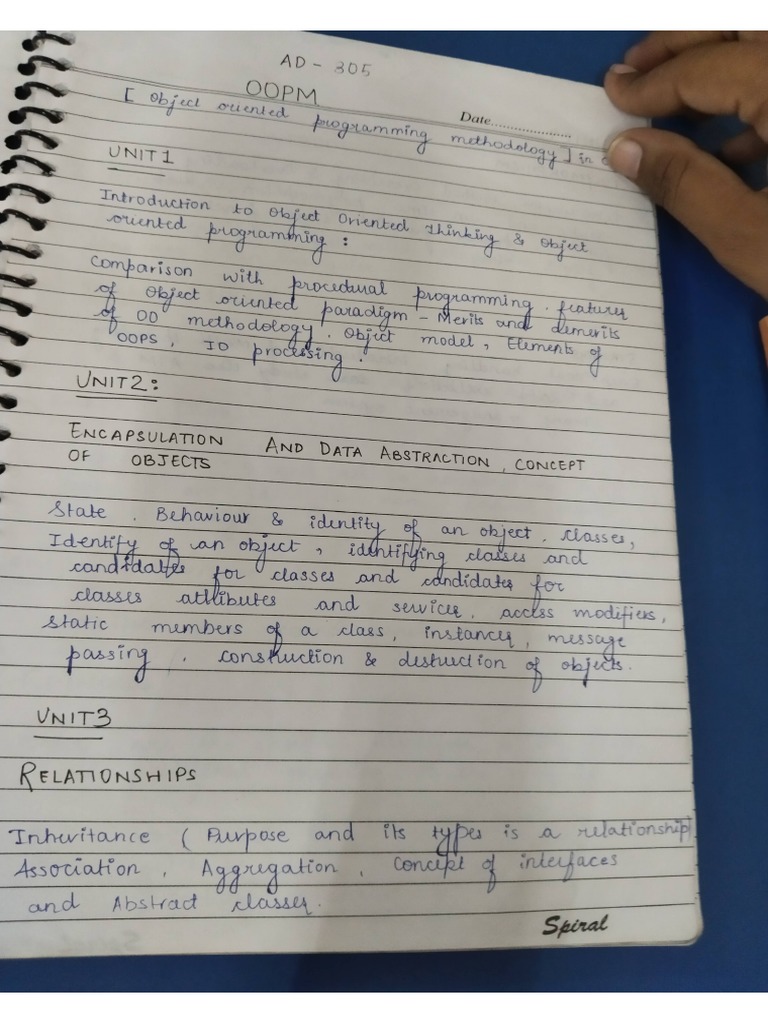 AD - 305
OOPM
Date....................
[ Object oriented programming methodology ] in
UNIT 1
Introduction to Object Oriented thinking & Object
oriented programming :
Comparison with procedural programming . features
of Object oriented paradigm - Merits and demerits
of OO methodology . Object model , Elements of
OOPS , IO processing .
UNIT2 :
ENCAPSULATION AND DATA ABSTRACTION , CONCEPT
OF OBJECTS
State . Behaviour & identity of an object . classes,
Identify of an object , identifying classes and
candidates for classes and candidates for
classes attributes and services , access modifiers,
Static members of a class, instances , message
passing . construction & destruction of objects.
UNIT3
RELATIONSHIPS
Inheritance ( Purpose and its types is a relationship)
Association , Aggregation , Concept of interfaces
and Abstract classes.
Spiral